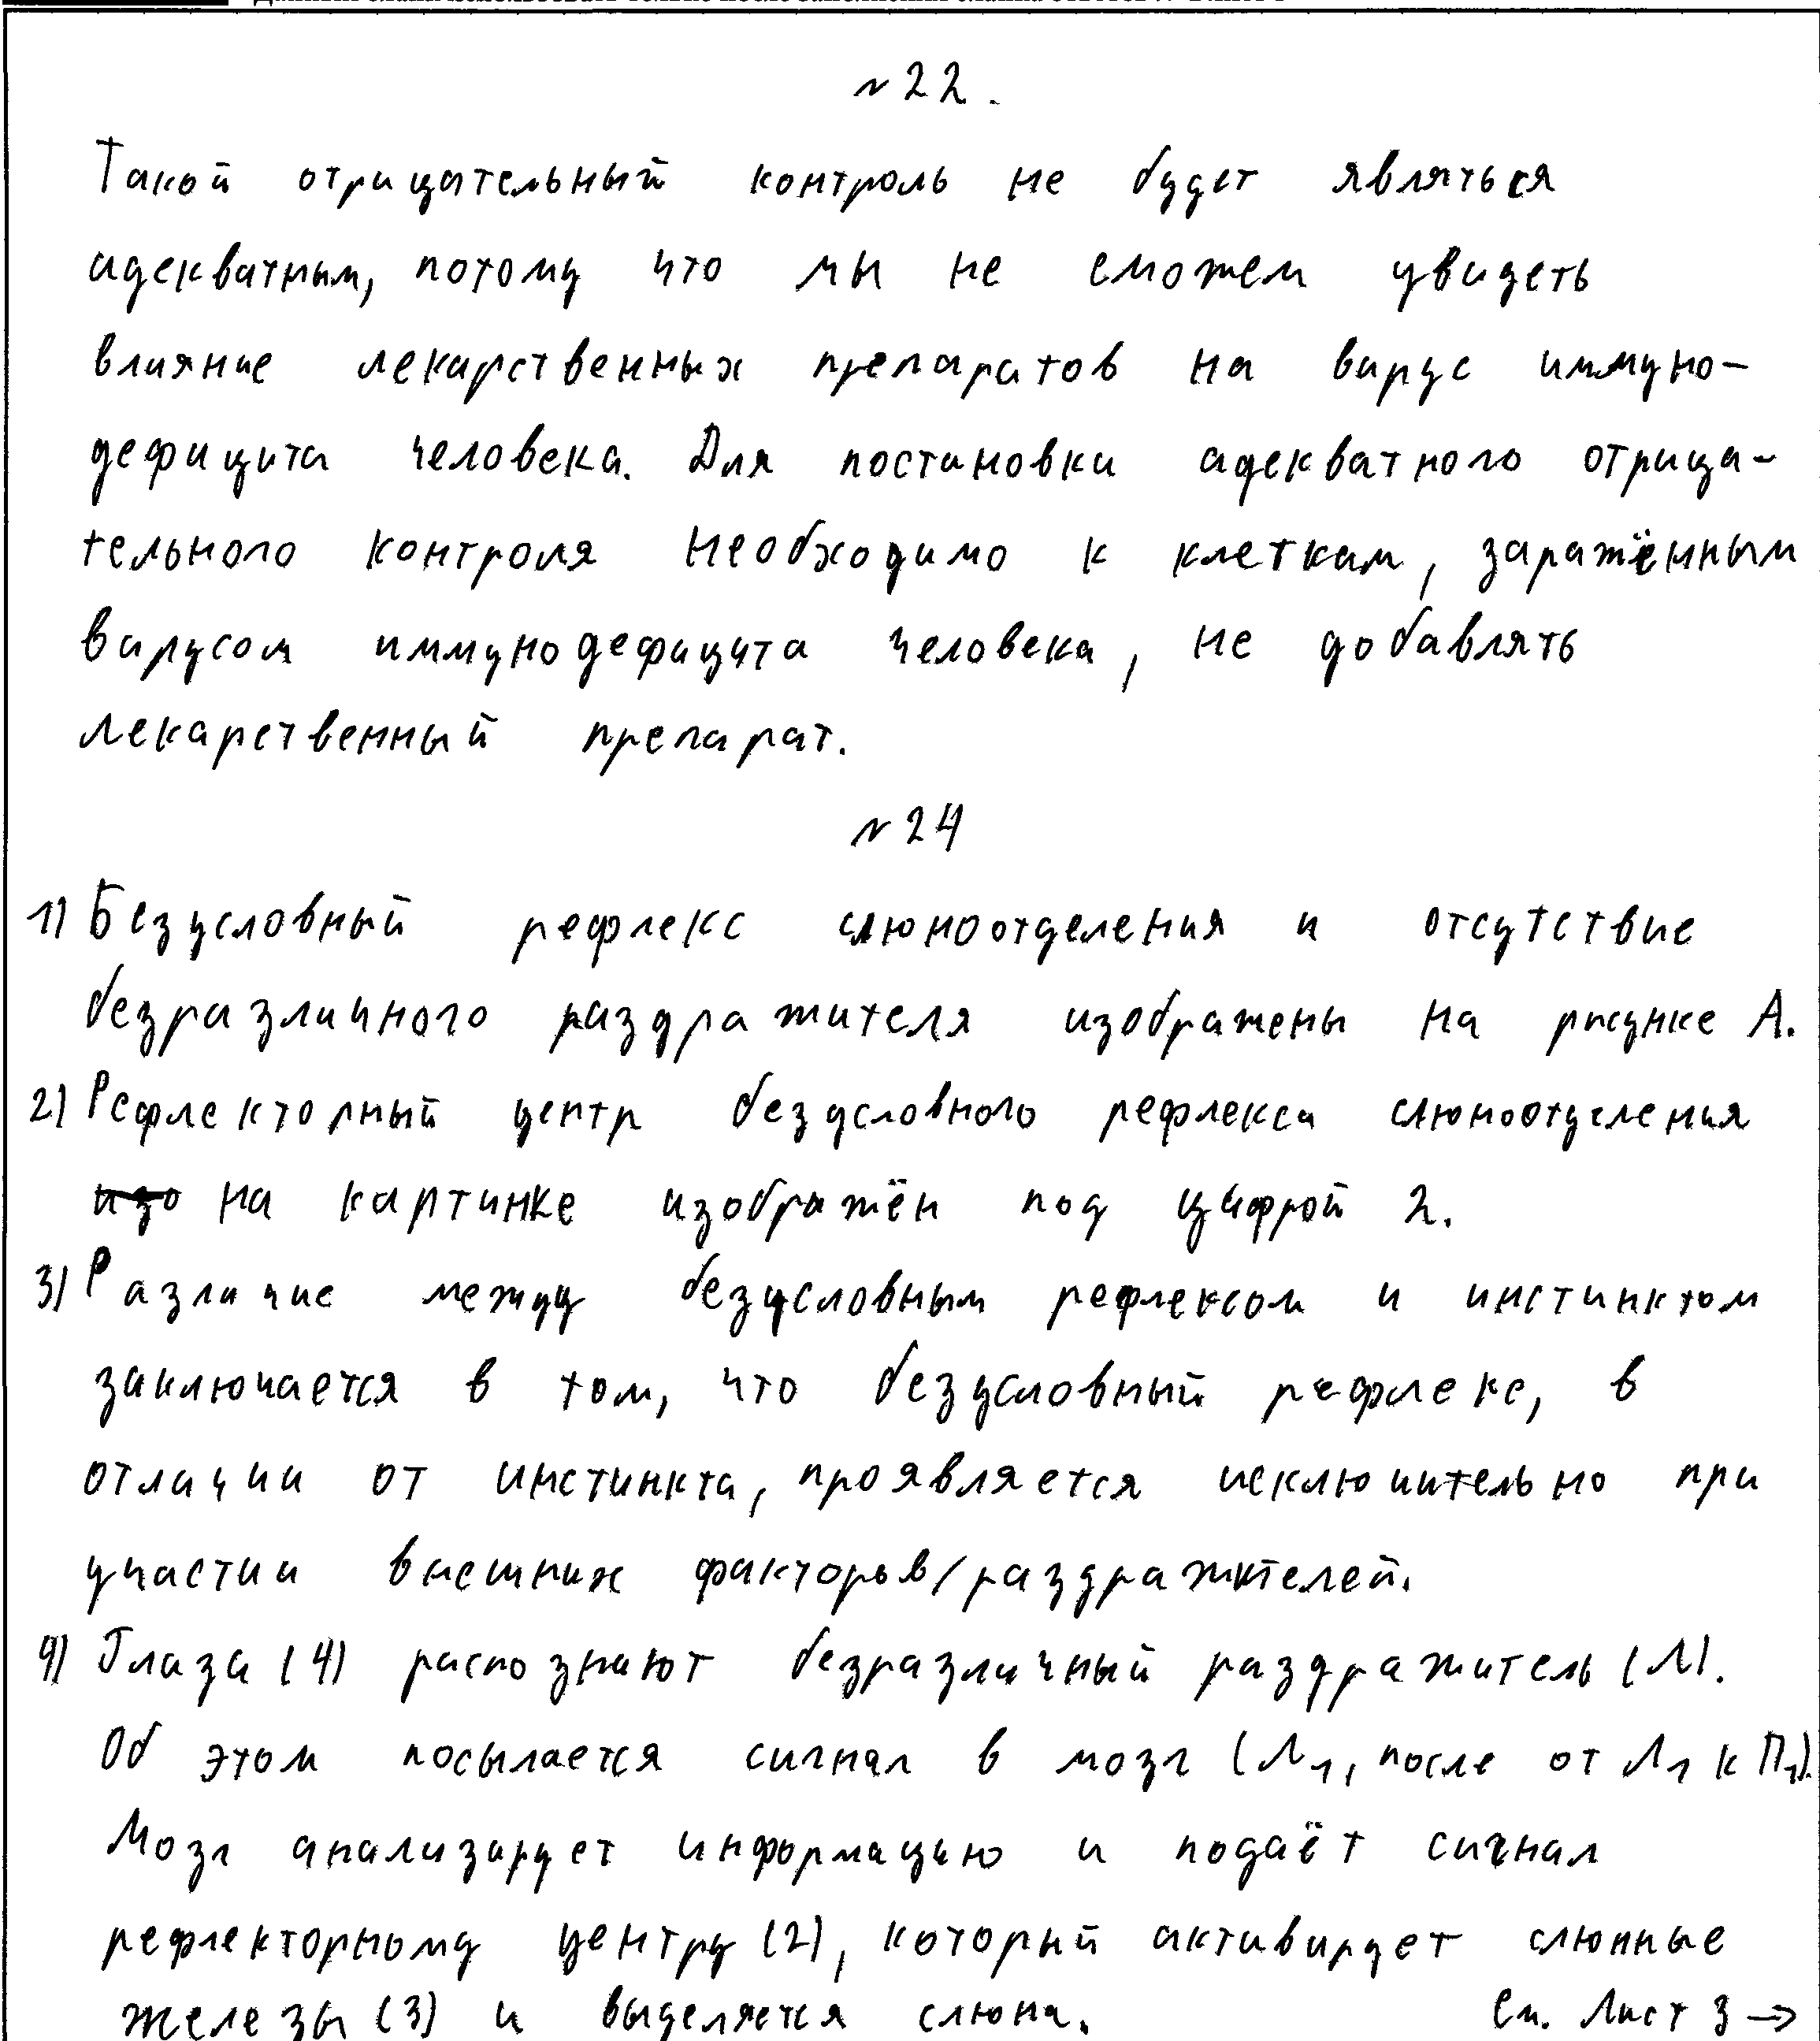 №22.
Такой отрицательный контроль не будет являться
адекватным, потому что мы не сможем увидеть
влияние лекарственных препаратов на вирус иммуно-
дефицита человека. Для постановки адекватного отрица-
тельного контроля необходимо к клеткам, заражённым
вирусом иммунодефицита человека, не добавлять
лекарственный препарат.
№24
1) Безусловный рефлекс слюноотделения и отсутствие
безразличного раздражителя изображены на рисунке А.
2) Рефлекторный центр безусловного рефлекса слюноотделения
изо на картинке изображён под цифрой 2.
3) Различие между безусловным рефлексом и инстинктом
заключается в том, что безусловный рефлекс, в
отличии от инстинкта, проявляется исключительно при
участии внешних факторов/раздражителей.
4) Глаза (4) распознают безразличный раздражитель (Л).
Об этом посылается сигнал в мозг (Л1, после от Л1 к П1).
Мозг анализирует информацию и подаёт сигнал
рефлекторному центру (2), который активирует слюнные
железы (3) и выделяется слюна. См. Лист 3 →